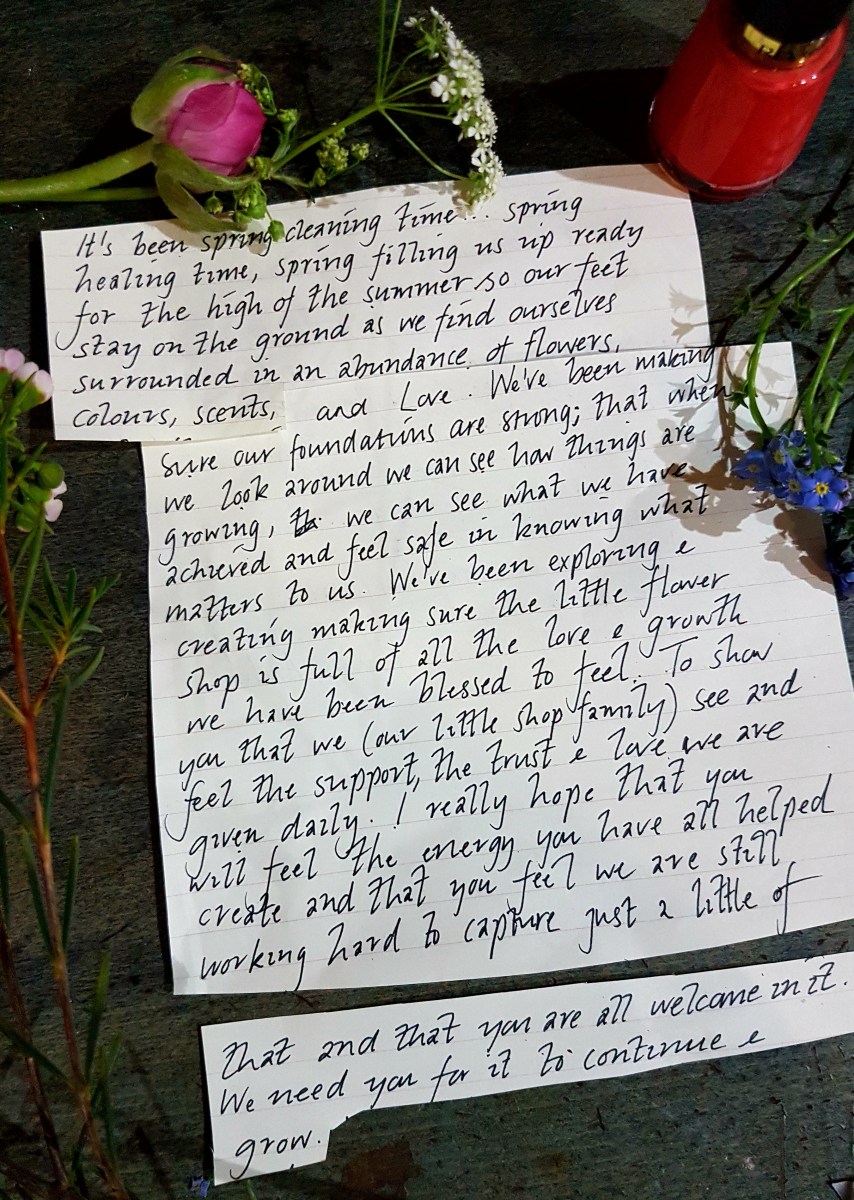 It's been spring cleaning time... spring
healing time, spring filling us up ready
for the high of the summer so our feet
stay on the ground as we find ourselves
surrounded in an abundance of flowers,
colours, scents, and Love. We've been making
sure our foundations are strong; that when
we look around we can see how things are
growing, we can see what we have
achieved and feel safe in knowing what
matters to us. We've been exploring e
creating making sure the little flower
shop is full of all the love e growth
we have been blessed to feel. To show
you that we (our little shop family) see and
feel the support, the trust e love we are
given daily. I really hope that you
will feel the energy you have all helped
create and that you feel we are still
working hard to capture just a little of
that and that you are all welcome in it.
We need you for it to continue e
grow.